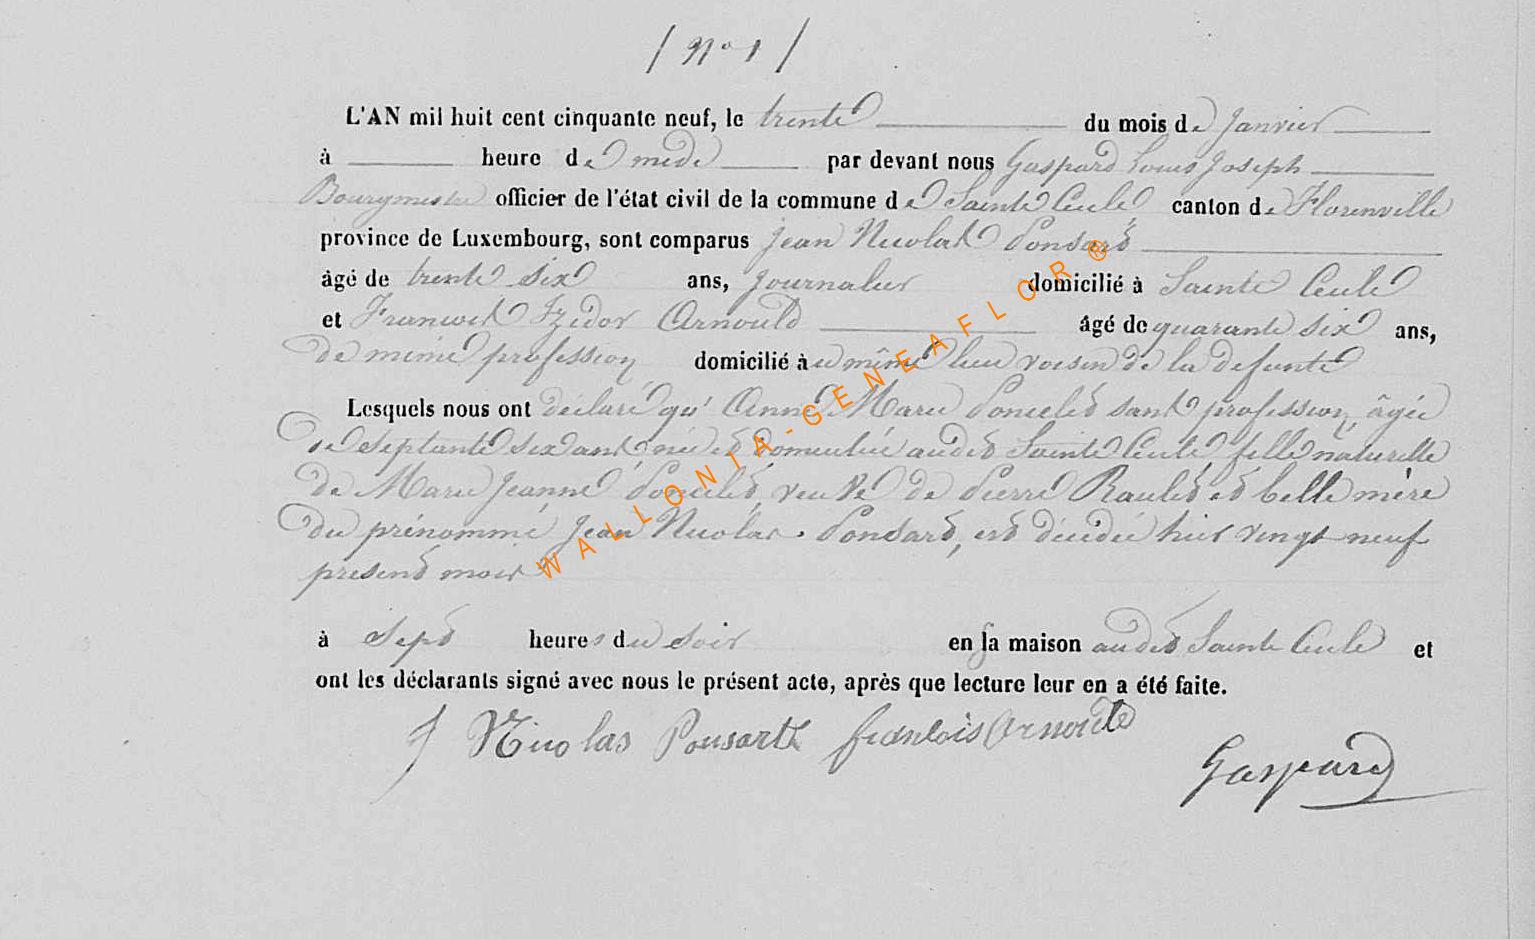 / N° 1 /
L'AN mil huit cent cinquante neuf, le trente du mois de Janvier
à heure de midi par devant nous Gaspard Louis Joseph
Bourgmestre officier de l'état civil de la commune de Sainte Cecile canton de Florenville
province de Luxembourg, sont comparus Jean Nicolas Ponsard
âgé de trente six ans, Journalier domicilié à Sainte Cecile
et François Izidor Arnould âgé de quarante six ans,
de même profession domicilié au même lieu voisin de la defunte
Lesquels nous ont déclaré qu' Anne Marie Poncelet sans profession, âgée
de septante six ans, née et domiciliée audit Sainte Cecile, fille naturelle
de Marie Jeanne Poncelet, veuve de Pierre Raulet et belle mère
du prénommé Jean Nicolas Ponsard, est décédée hier vingt neuf
present mois
à Sept heures du soir en sa maison audit Sainte Cecile et
ont les déclarants signé avec nous le présent acte, après que lecture leur en a été faite.
J Nicolas Ponsart francois Arnould
Gaspard
WALLONIA-GENEAFLOR®